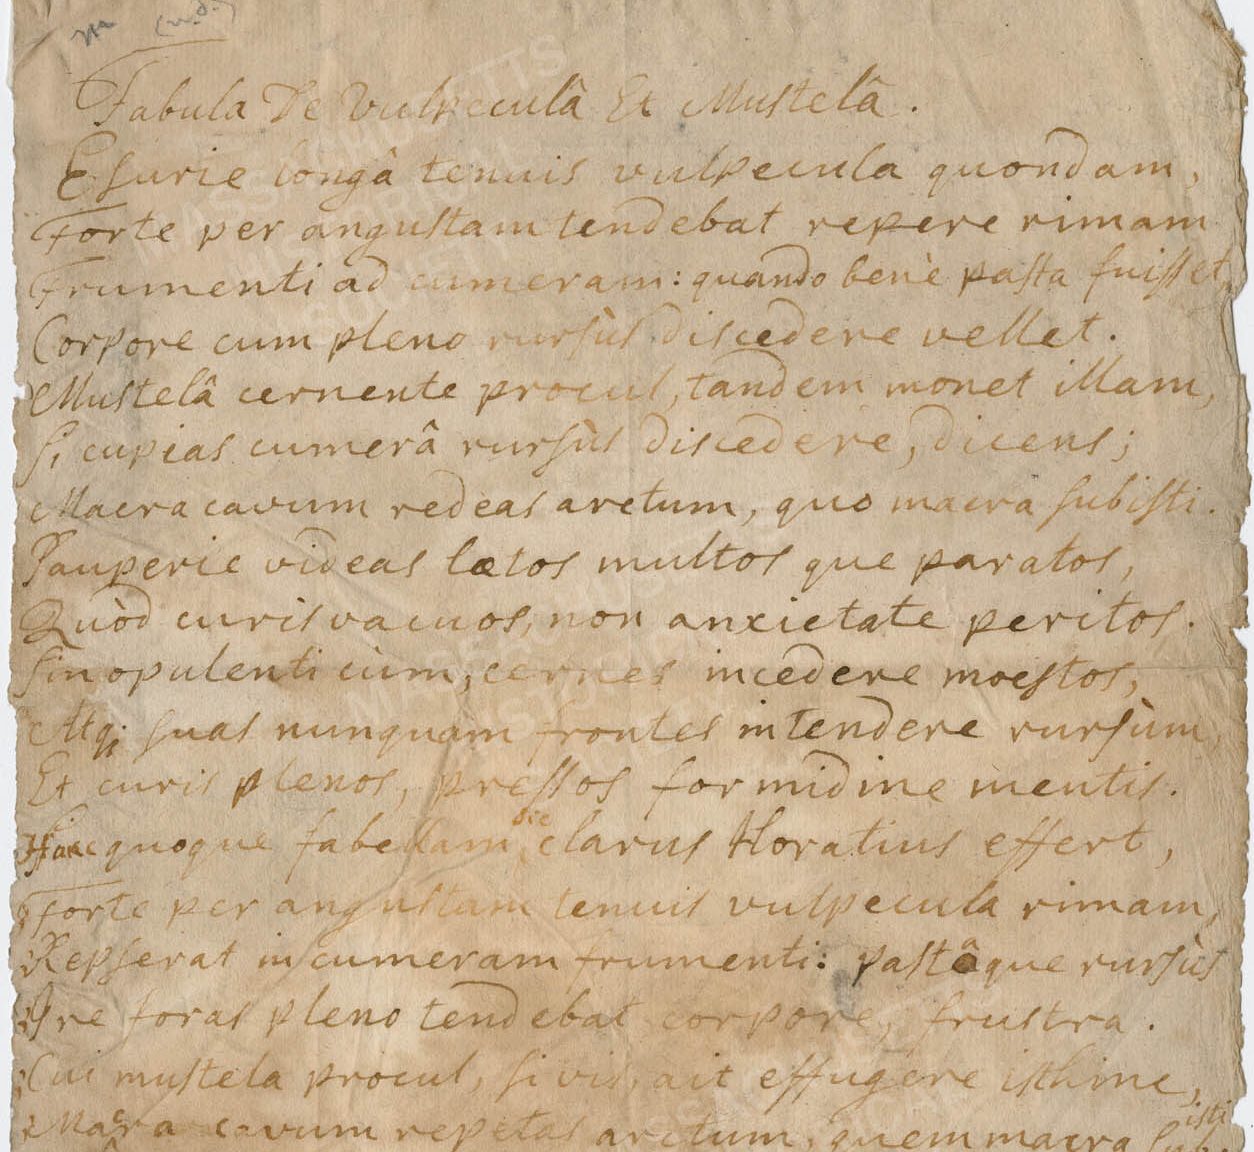 m (n.d.)
Fabula De Vulpeculâ Et Mustelâ.
Esurie longâ tenuis vulpecula quondam,
Forte per angustam tendebat repere rimam
Frumenti ad cumeram: quando benè pasta fuisset,
Corpore cum pleno rursùs discedere vellet.
Mustelâ cernente procul, tandem monet illam,
Si cupias cumerâ rursùs discedere, dicens;
Macra cavum redeas arctum, quo macra subisti.
Pauperie videas lætos multos que paratos,
Quòd curis vacuos, non anxietate peritos.
Sin opulenti cùm, cernes incedere moestos,
Atq; suas nunquam frontes intendere rursùm,
Et curis plenos, pressos formidine mentis.
Hanc quoque fabellam sic clarus Horatius effert,
Forte per angustam tenuis vulpecula rimam,
Repserat in cumeram frumenti: pastâque rursùs
Ire foras pleno tendebat corpore, frustra.
Cui mustela procul, si vis, ait effugere isthinc,
Macra cavum repetas arctum, quem macra subisti
MASSACHUSETTS
HISTORICAL
SOCIETY
MASSACHUSETTS
HISTORICAL
SOCIETY
MASSACHUSETTS
HISTORICAL